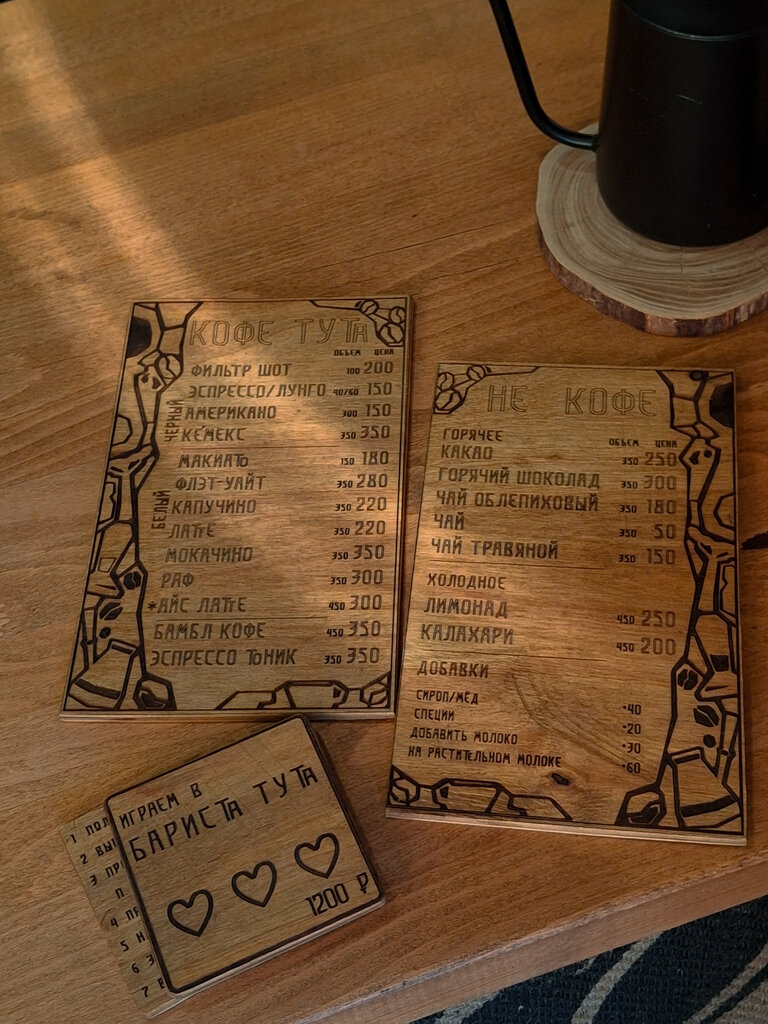 КОФЕ ТУТа
ОБЪЕМ ЦЕНА
ЧЕРНЫЙ
ФИЛЬТР ШОТ 100 200
ЭСПРЕССО/ЛУНГО 40/60 150
АМЕРИКАНО 300 150
КЕМЕКС 350 350
БЕЛЫЙ
МАКИАТО 150 180
ФЛЭТ-УАЙТ 350 280
КАПУЧИНО 350 220
ЛАТТЕ 350 220
МОКАЧИНО 350 350
РАФ 350 300
*АЙС ЛАТТЕ 450 300
БАМБЛ КОФЕ 450 350
ЭСПРЕССО ТОНИК 350 350
НЕ КОФЕ
ГОРЯЧЕЕ ОБЪЕМ ЦЕНА
КАКАО 350 250
ГОРЯЧИЙ ШОКОЛАД 350 300
ЧАЙ ОБЛЕПИХОВЫЙ 350 180
ЧАЙ 350 50
ЧАЙ ТРАВЯНОЙ 350 150
ХОЛОДНОЕ
ЛИМОНАД 450 250
КАЛАХАРИ 450 200
ДОБАВКИ
СИРОП/МЁД +40
СПЕЦИИ +20
ДОБАВИТЬ МОЛОКО +30
НА РАСТИТЕЛЬНОМ МОЛОКЕ +60
ИГРАЕМ В
БАРИСТА ТУТА
1200 ₽
1
2
3
4
5
6
7